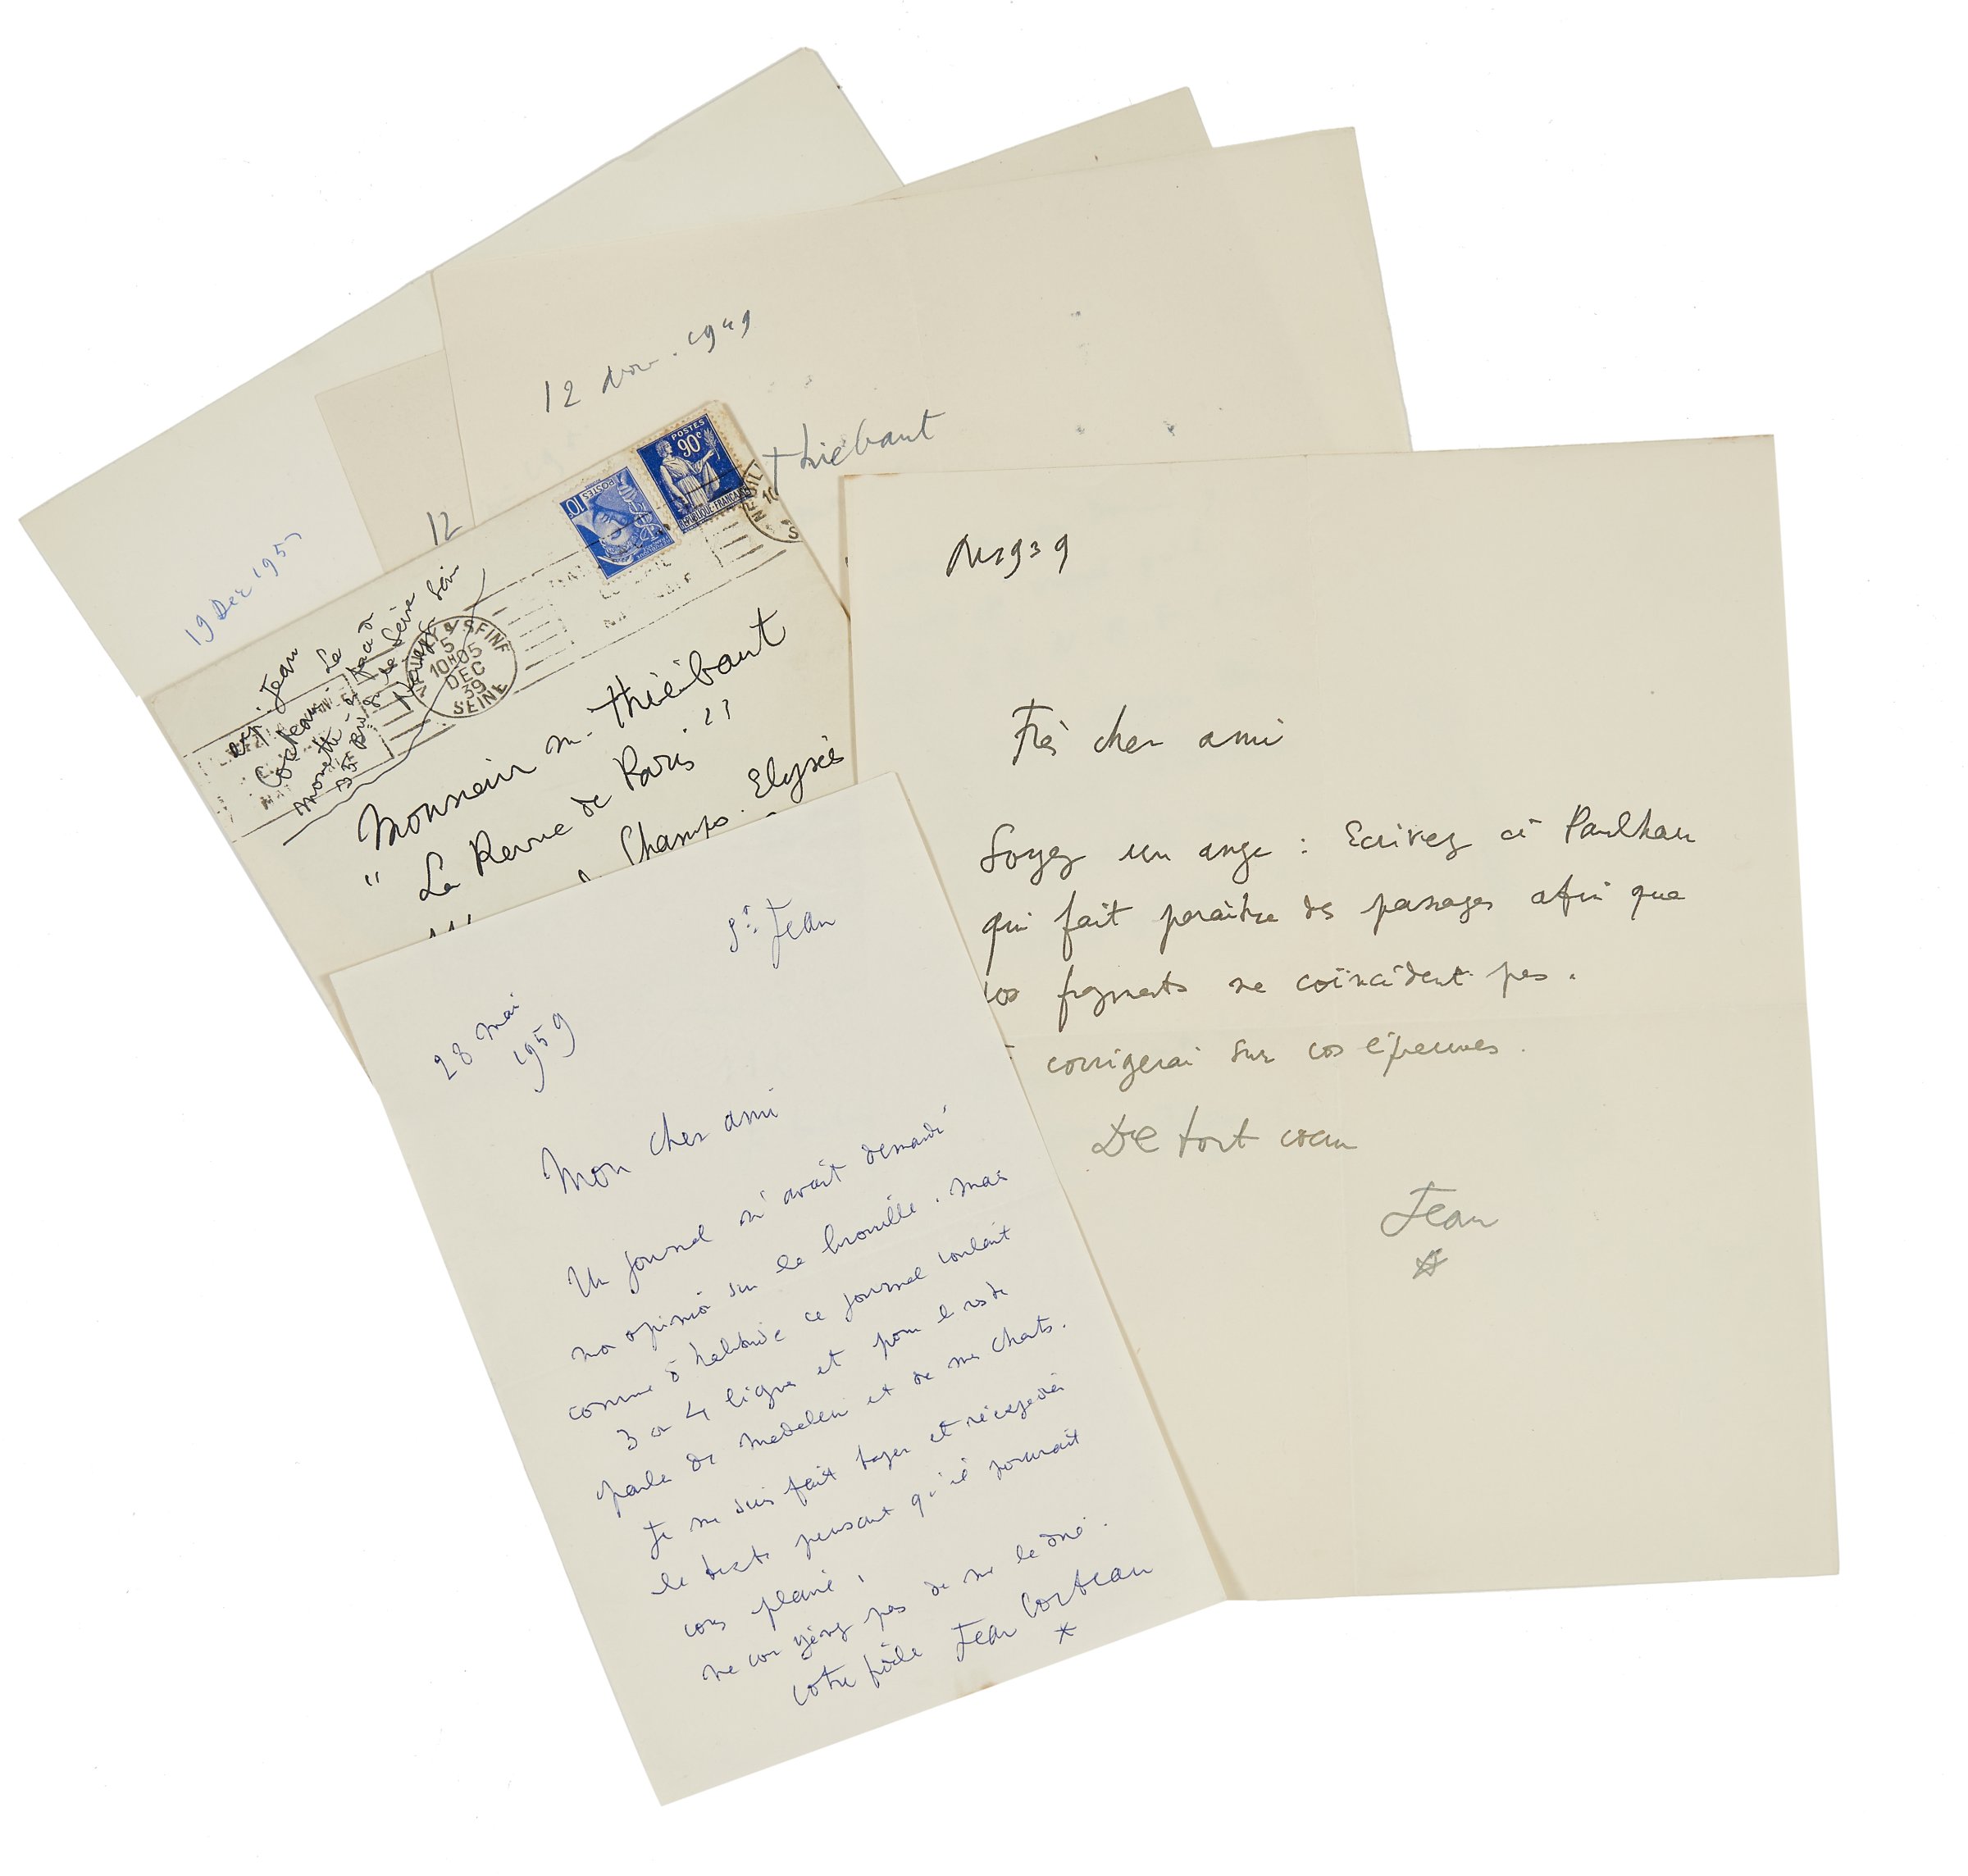 12 Nov. 1949
Thiébaut
19 Dec 1957
12
POSTES
90c
REPUBLIQUE FRANÇAISE
10c
POSTES
exp. Jean
Cocteau. La
NEUILLY S/ SEINE
5
10H05
DEC
39
SEINE
Monsieur M. Thiébaut
" La Revue de Paris "
Champs. Elysées
1939
Très cher ami
Soyez un ange : Ecrivez à Paulhan
qui fait paraître des passages afin que
vos fragments ne coïncident pas.
corrigerai sur vos épreuves.
De tout cœur
Jean
St Jean
28 mai
1959
Mon cher ami
Un journal m'avait demandé
mon opinion sur la brouille. Mais
comme d'habitude ce journal voulait
3 ou 4 lignes et pour le reste
parler de Madeleine et de mes chats.
Je me suis fait taper et
le texte pensant qu'il pourrait
vous plaire.
ne vous gênez pas de me le dire.
votre fidèle Jean Cocteau